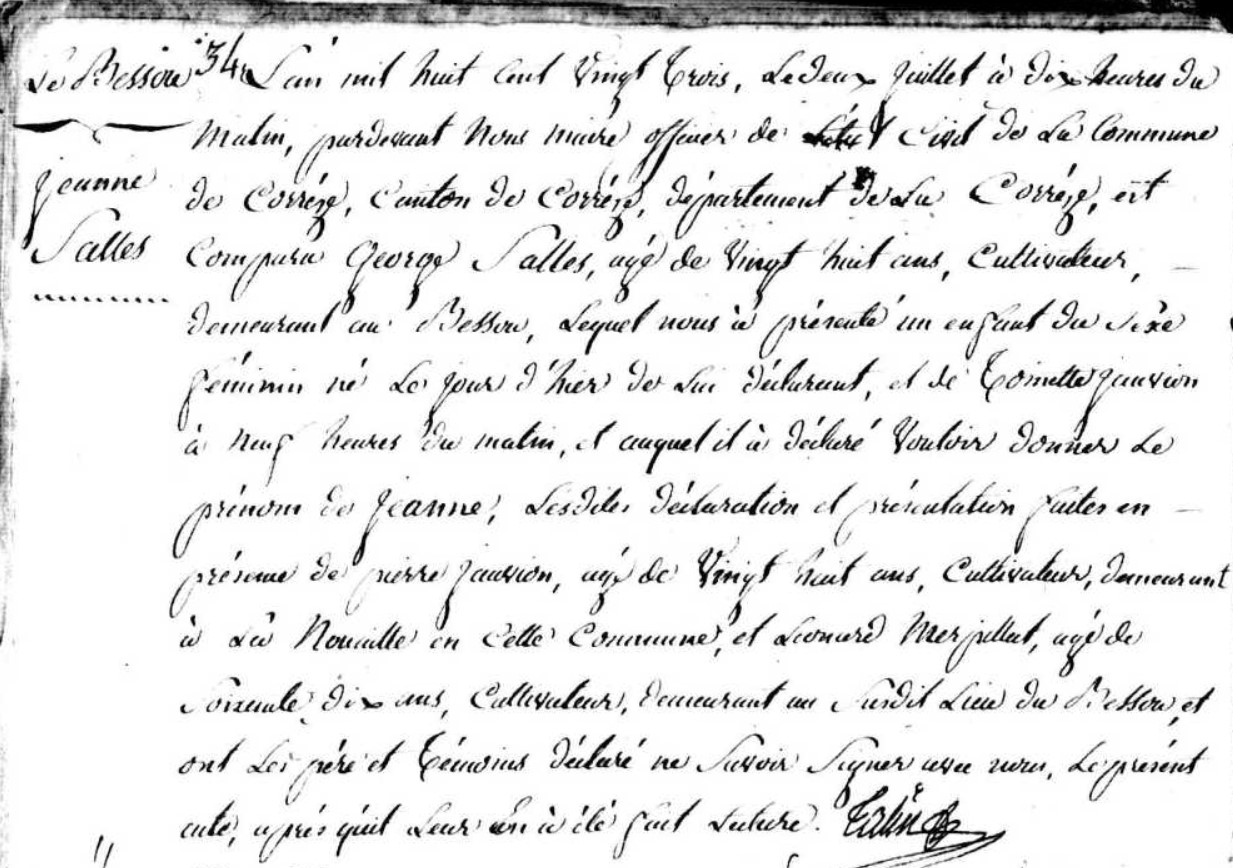 Le Bessou
Jeanne
Salles
34 L'an mil huit Cent Vingt Trois, Le deux Juillet à dix heures du
matin, pardevant Nous maire officier de Civil de La Commune
de Corrèze, Canton de Corrèze, département de La Corrèze, est
Comparu George Salles, agé de Vingt huit ans, Cultivateur,
demeurant au Bessou, Lequel nous à présenté un enfant du Sèxe
féminin né Le jour d'hier de Lui déclarant, et de Toinette Jauvion
à neuf heures du matin, et auquel il à déclaré Vouloir donner Le
prénom de Jeanne, Lesdites déclaration et présentation faites en
présence de pierre Jauvion, agé de Vingt huit ans, Cultivateur, demeurant
à La Nouaille en Cette Commune, et Léonard Merpillat, agé de
Soixante dix ans, Cultivateur, demeurant au Susdit Lieu du Bessou, et
ont Les père et Témoins déclaré ne Savoir Signer avec nous, Le présent
acte, après qu'il Leur En à été fait Lecture.